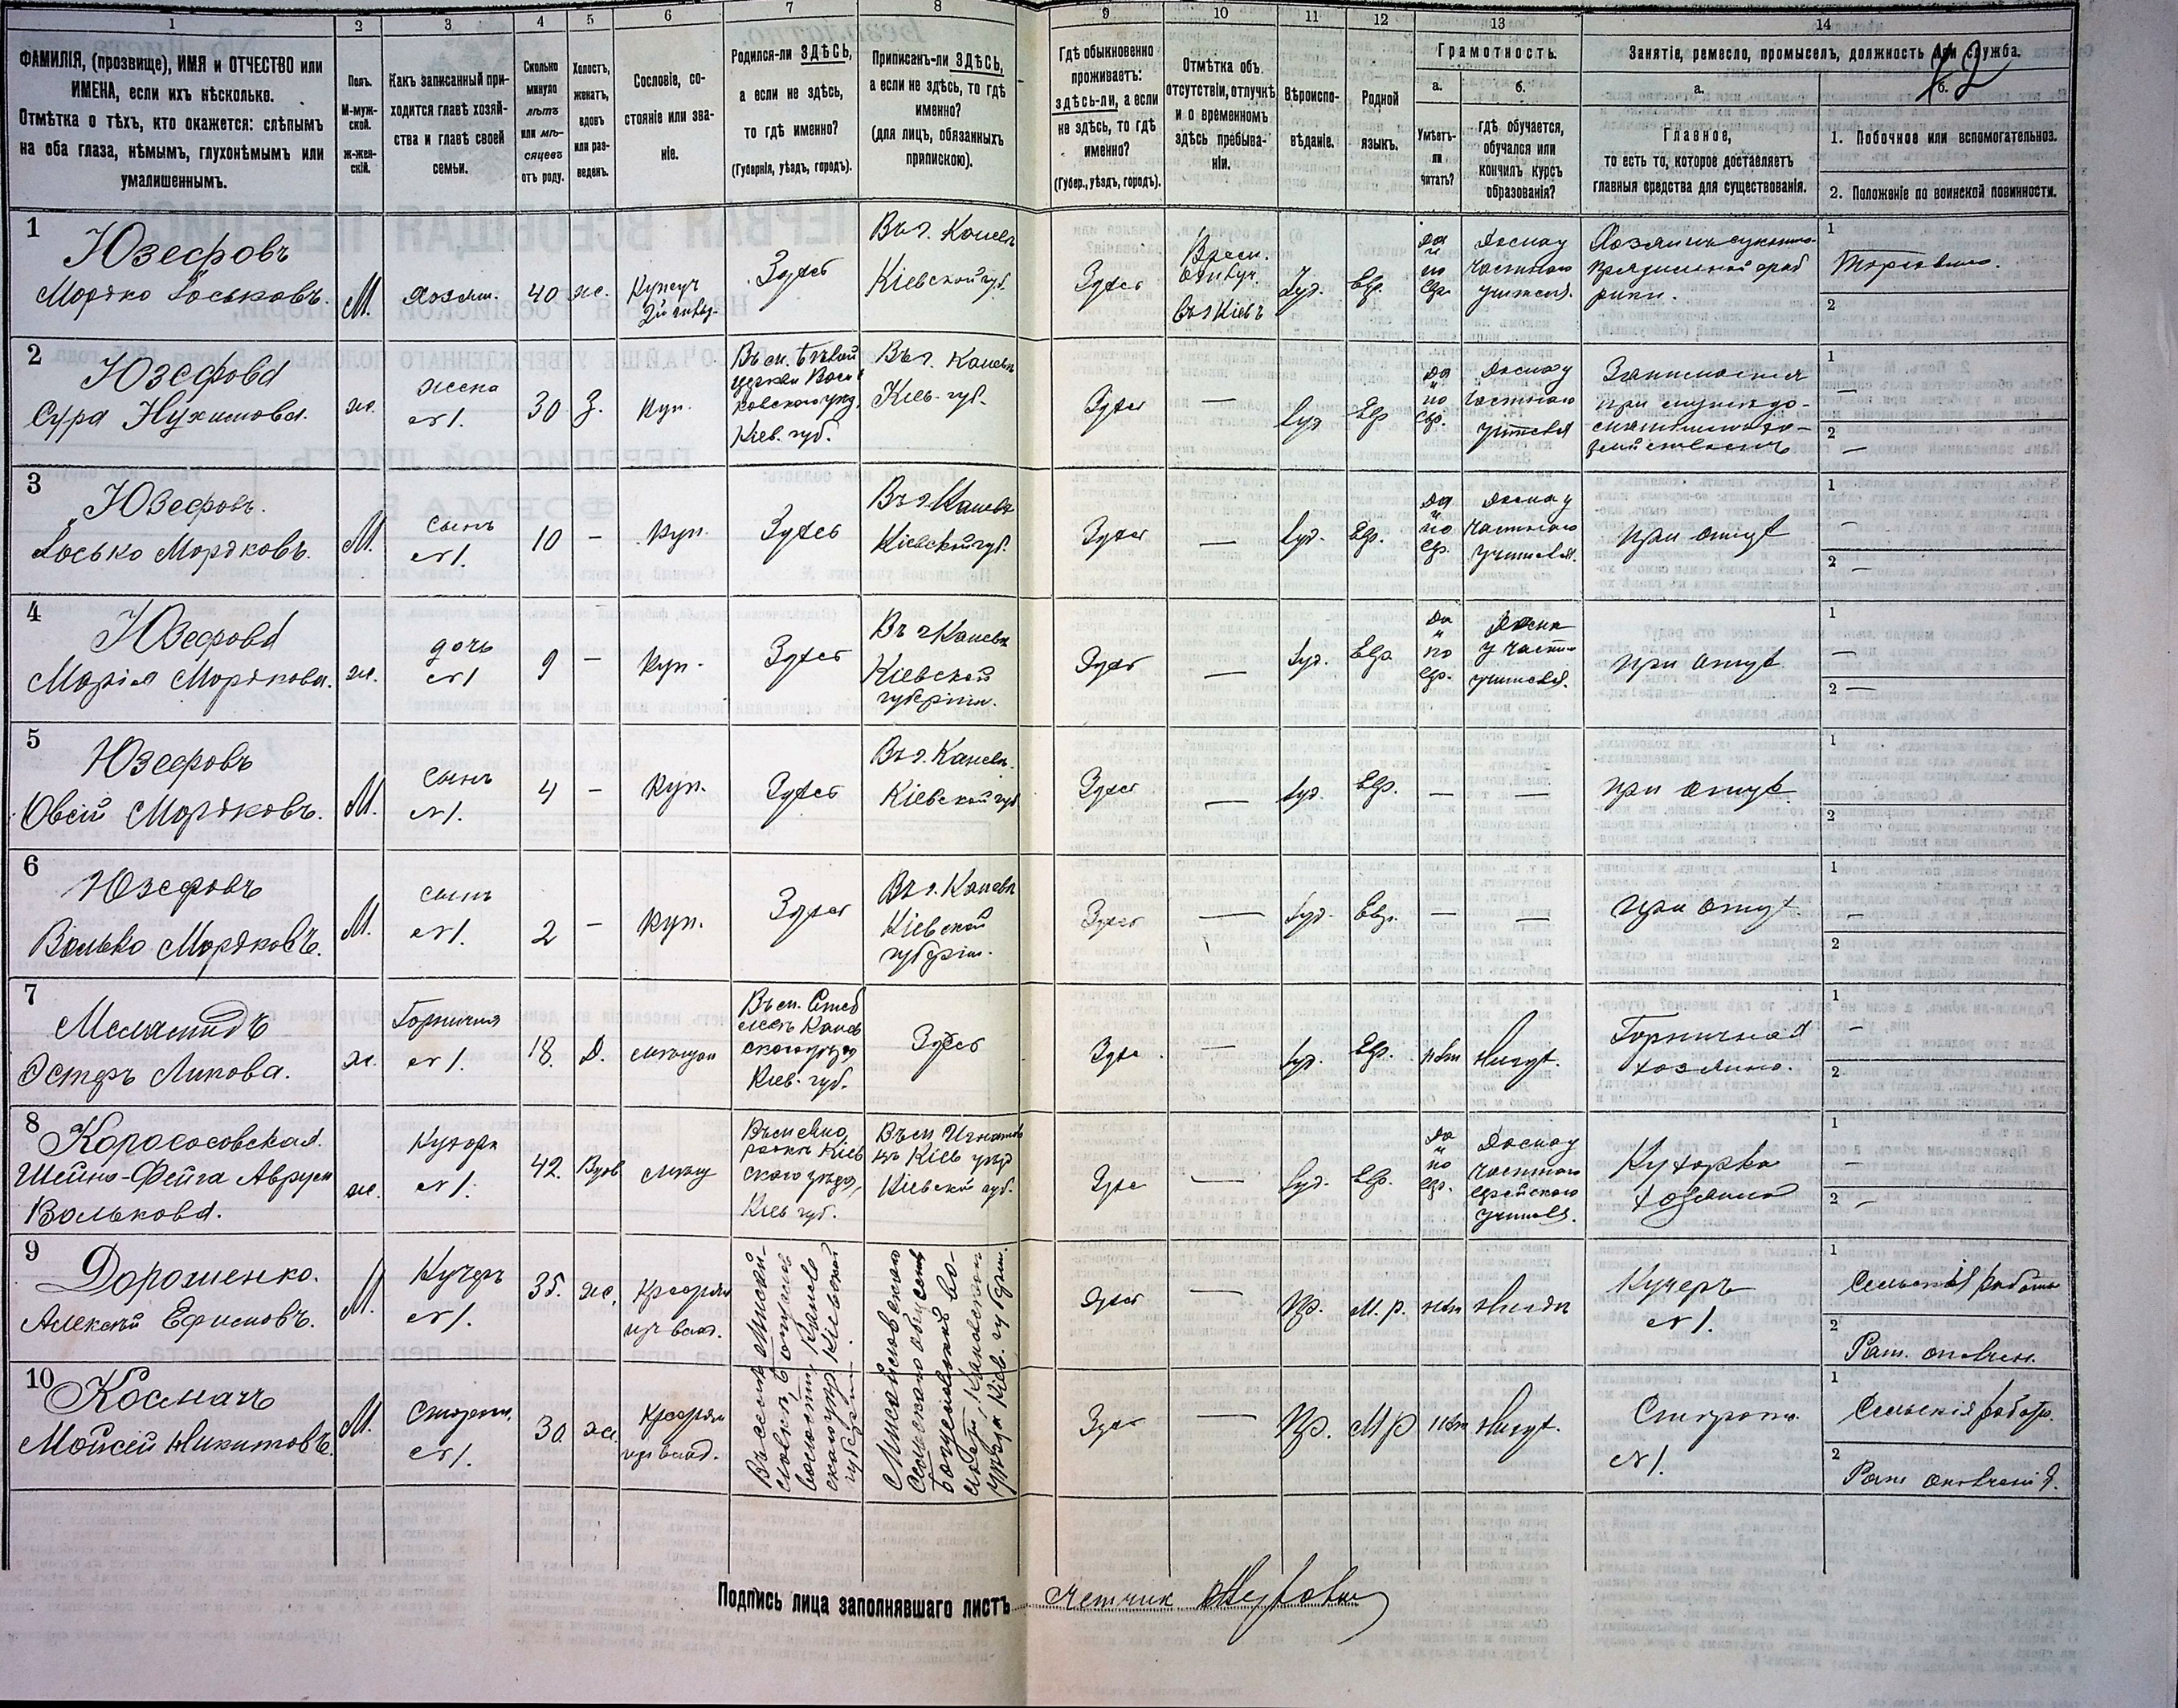 1 2 3 4 5 6 7 8 9 10 11 12 13 14
ФАМИЛІЯ, (прозвище), ИМЯ и ОТЧЕСТВО или
ИМЕНА, если ихъ нѣсколько.
Отмѣтка о тѣхъ, кто окажется: слѣпымъ
на оба глаза, нѣмымъ, глухонѣмымъ или
умалишеннымъ.
Полъ.
М-муж-
ской.
Ж-жен-
скій.
Какъ записанный при-
ходится главѣ хозяй-
ства и главѣ своей
семьи.
Сколько
минуло
лѣтъ
или мѣ-
сяцевъ
отъ роду.
Холостъ,
женатъ,
вдовъ
или раз-
веденъ.
Сословіе, со-
стояніе или зва-
ніе.
Родился-ли ЗДѢСЬ,
а если не здѣсь,
то гдѣ именно?
(Губернія, уѣздъ, городъ).
Приписанъ-ли ЗДѢСЬ,
а если не здѣсь, то гдѣ
именно?
(для лицъ, обязанныхъ
припискою).
Гдѣ обыкновенно
проживаетъ:
здѣсь-ли, а если
не здѣсь, то гдѣ
именно?
(Губер., уѣздъ, городъ).
Отмѣтка объ
отсутствіи, отлучкѣ
и о временномъ
здѣсь пребыва-
ніи.
Вѣроиспо-
вѣданіе.
Родной
языкъ.
Грамотность.
а.
Умѣетъ-
ли
читать?
б.
гдѣ обучается,
обучался или
кончилъ курсъ
образованія?
Занятіе, ремесло, промыселъ, должность или служба.
а.
Главное,
то есть то, которое доставляетъ
главныя средства для существованія.
б.
1. Побочное или вспомогательное.
2. Положеніе по воинской повинности.
42
1
Юзефовъ
Мордко Іоськовъ.
М.
Хозяин.
40
ж.
Купецъ
2й гильд.
Здѣсь
Въ г. Каневѣ
Кіевской губ.
Здѣсь
Врем.
отлуч.
въ г. Кіевъ
Іуд.
Евр.
да
и
по
Евр.
Дома у
частнаго
учителя.
Хозяинъ суконно-
прядильной фаб
рики.
1
Торговля.
2
2
Юзефова
Сура Нухимова.
ж.
жена
№ 1.
30
З.
Куп.
Въ м. Бѣлой
Церкви Васил
ковского уѣзд.
Кіев. губ.
Въ г. Каневѣ
Кіев. губ.
Здѣсь
—
Іуд
Евр
да
и
по
Евр.
Дома у
частнаго
учителя
Занимается
при мужѣ до-
машнимъ хо-
зяйствомъ
1
—
2
—
3
Юзефовъ.
Іосько Мордковъ.
М.
Сынъ
№ 1.
10
—
Куп.
Здѣсь
Въ г. Каневѣ
Кіевской губ.
Здѣсь
—
Іуд.
Евр.
да
и
по
Евр.
Дома у
частнаго
учителя.
при отцѣ
1
—
2
—
4
Юзефова
Марія Мордкова.
ж.
дочь
№ 1
9
—
Куп.
Здѣсь
Въ г. Каневѣ
Кіевской
губерніи.
Здѣсь
—
Іуд.
Евр
да
и
по
Евр.
Дома
у частн
учителя.
при отцѣ
1
—
2 —
5
Юзефовъ
Овсій Мордковъ.
М.
Сынъ
№ 1.
4
—
Куп.
Здѣсь
Въ г. Каневѣ.
Кіевской губ
Здѣсь
—
Іуд.
Евр.
—
—
при отцѣ.
1
2
6
Юзефовъ
Волько Мордковъ.
М.
Сынъ
№ 1.
2
—
Куп.
Здѣсь
Въ г. Каневѣ
Кіевской
губерніи.
Здѣсь
—
Іуд.
Евр.
—
—
при отцѣ.
1
—
2
7
Эстеръ Липова.
ж.
Горничная
№ 1.
18.
Д.
мѣщан
Въ м. Стеб
левѣ Канев
скаго уѣзда
Кіев. губ.
Здѣсь
Здѣсь.
—
Іуд.
Евр.
нѣт
нигдѣ.
Горничная
хозяина.
1
—
2
8
Шейна-Фейга Аврум
Волькова.
ж.
Кухарка
№ 1.
42.
Вдов
мѣщ
Кіев
скаго уѣзда,
Кіев губ.
Кіев уѣзд
Кіевской губ.
Здѣс
—
Іуд.
Евр.
да
и
по
Евр.
Дома у
частнаго
еврейскаго
учителя.
Кухарка
хозяина
1
—
2 —
9
Дорошенко.
Алексѣй Ефимовъ.
М.
Кучеръ
№ 1.
35.
ж.
Крестьян
изъ влад.
Здѣсь
—
Пр.
М. р.
нѣт
нигдѣ
Кучеръ
№ 1.
1
Сельскія работы
2
Рат. ополчен.
10
Космачъ
Мойсей Никитовъ.
М.
Сторожъ.
№ 1.
30.
ж.
Крестьян
изъ влад.
Здѣсь
—
Пр.
М р
нѣт
нигдѣ.
Сторожъ
№ 1.
1
Сельскія работы.
2
Рат ополченія.
Подпись лица заполнявшаго листъ
Счетчик